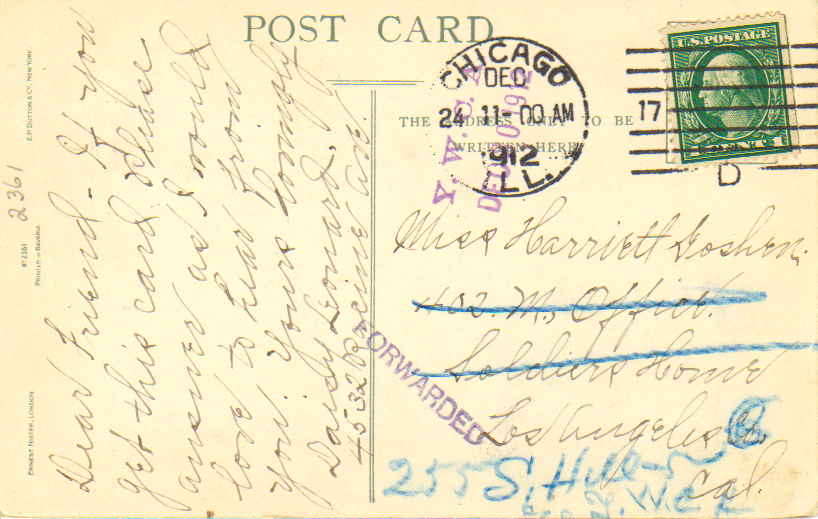 POST CARD
Dear Friend - If you
get this card please
answer as I would
love to hear from
you. Yours Lovingly
Daisy Leonard,
4532 Racine Ave.
E.P. DUTTON & CO. NEW YORK
2361
Nº 2361
PRINTED IN BAVARIA
ERNEST NISTER, LONDON
THE ADDRESS ONLY TO BE
WRITTEN HERE
CHICAGO
DEC
24 11-00 AM
1912
ILL.
17
D
U.S. POSTAGE
Y. W. C. A.
1912
Miss Harriett Goshen.
402. M, Office.
Soldiers Home
Los Angeles Co.
Cal.
FORWARDED
255 S, Hill
Y.W.C.A